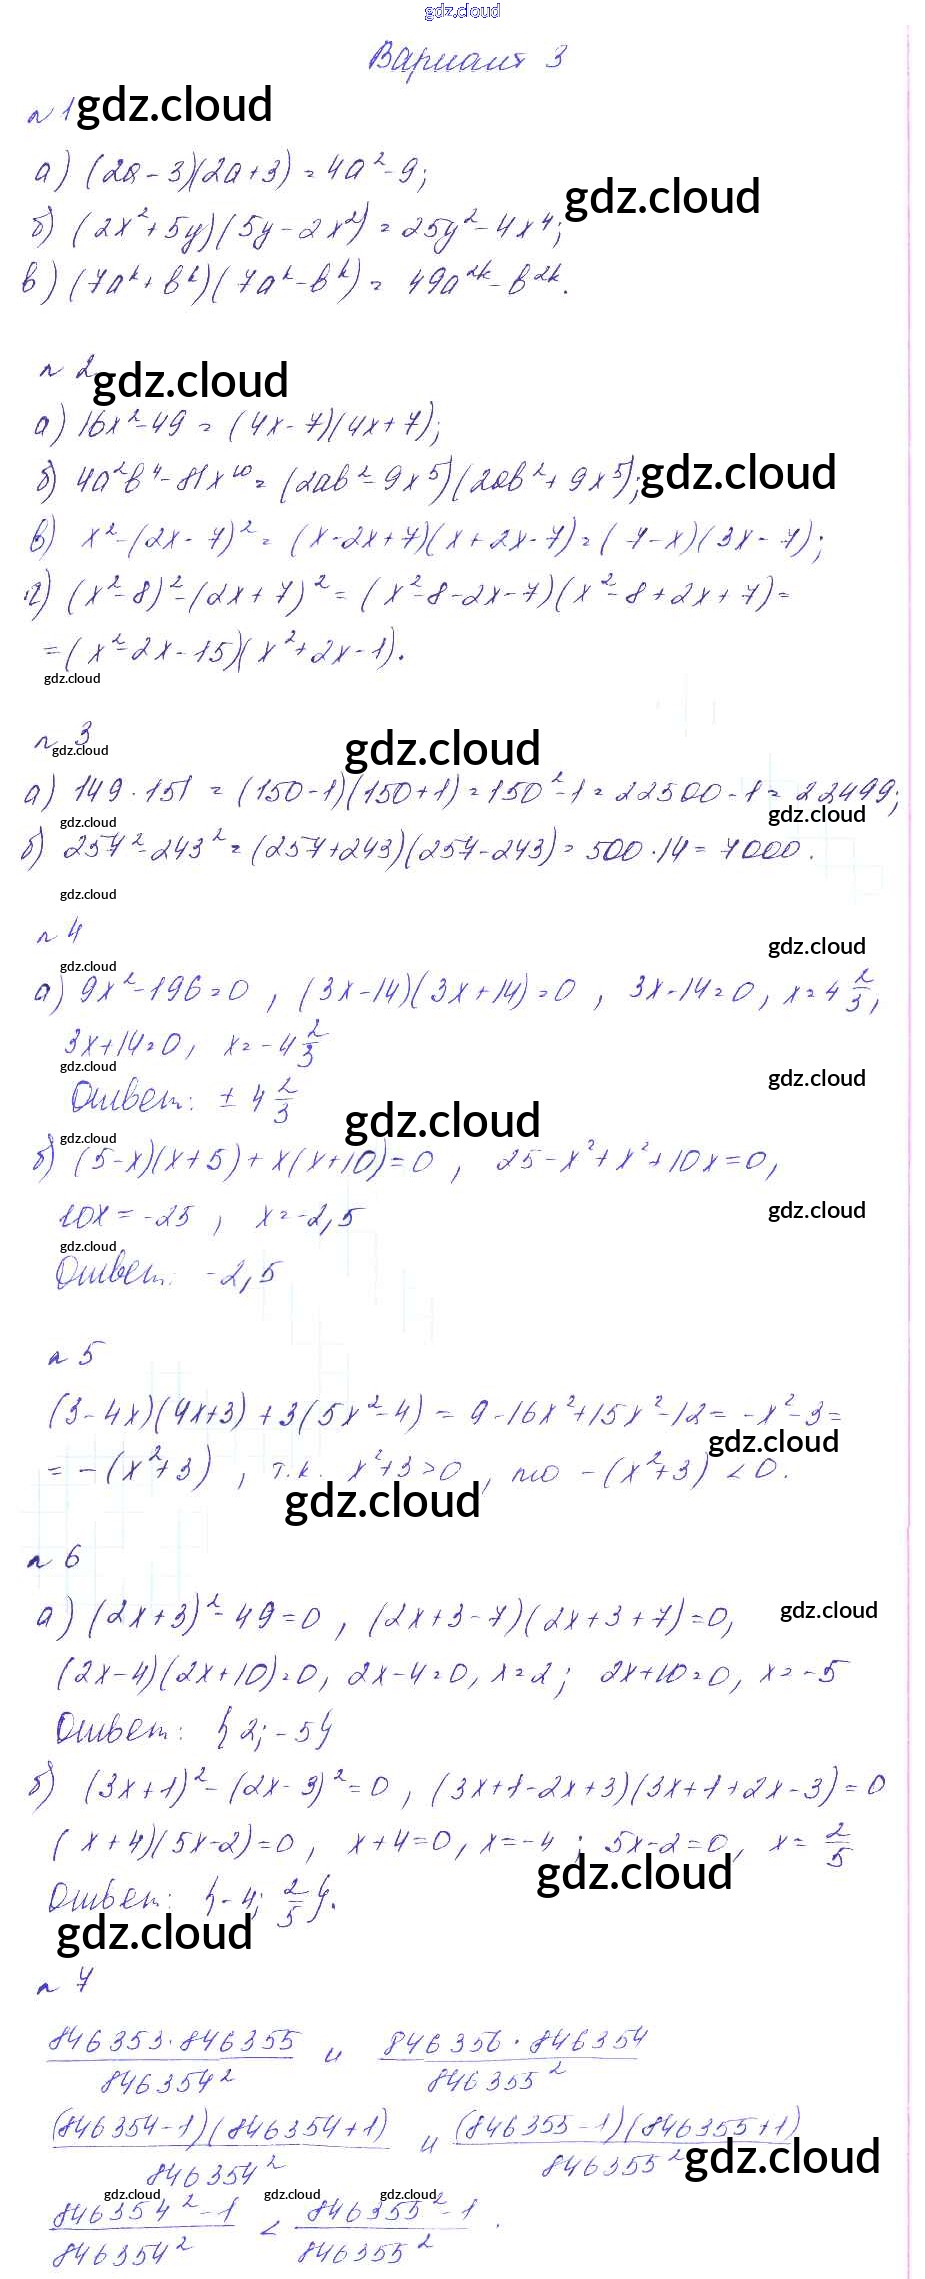 gdz.cloud
Вариант 3
№ 1 gdz.cloud
а) (2a - 3)(2a + 3) = 4a² - 9;
gdz.cloud
б) (2x² + 5y)(5y - 2x²) = 25y² - 4x⁴;
в) (7aᵏ + bᵏ)(7aᵏ - bᵏ) = 49a²ᵏ - b²ᵏ.
№ 2 gdz.cloud
а) 16x² - 49 = (4x - 7)(4x + 7);
б) 4a²b⁴ - 81x¹⁰ = (2ab² - 9x⁵)(2ab² + 9x⁵); gdz.cloud
в) x² - (2x - 7)² = (x - 2x + 7)(x + 2x - 7) = (7 - x)(3x - 7);
г) (x² - 8)² - (2x + 7)² = (x² - 8 - 2x - 7)(x² - 8 + 2x + 7) =
= (x² - 2x - 15)(x² + 2x - 1).
gdz.cloud
№ 3
gdz.cloud gdz.cloud
а) 149 · 151 = (150 - 1)(150 + 1) = 150² - 1 = 22500 - 1 = 22499;
gdz.cloud gdz.cloud
б) 257² - 243² = (257 + 243)(257 - 243) = 500 · 14 = 7000.
gdz.cloud
№ 4
gdz.cloud
gdz.cloud
а) 9x² - 196 = 0, (3x - 14)(3x + 14) = 0, 3x - 14 = 0, x = 4 2/3;
3x + 14 = 0, x = -4 2/3
gdz.cloud gdz.cloud
Ответ: ± 4 2/3
gdz.cloud
gdz.cloud
б) (5 - x)(x + 5) + x(x + 10) = 0, 25 - x² + x² + 10x = 0,
10x = -25, x = -2,5
gdz.cloud
gdz.cloud
Ответ: -2,5
№ 5
(3 - 4x)(4x + 3) + 3(5x² - 4) = 9 - 16x² + 15x² - 12 = -x² - 3 =
gdz.cloud
= -(x² + 3), т.к. x² + 3 > 0, то -(x² + 3) < 0.
gdz.cloud
№ 6
а) (2x + 3)² - 49 = 0, (2x + 3 - 7)(2x + 3 + 7) = 0,
gdz.cloud
(2x - 4)(2x + 10) = 0, 2x - 4 = 0, x = 2; 2x + 10 = 0, x = -5
Ответ: {2; -5}
б) (3x + 1)² - (2x - 3)² = 0, (3x + 1 - 2x + 3)(3x + 1 + 2x - 3) = 0
(x + 4)(5x - 2) = 0, x + 4 = 0, x = -4; 5x - 2 = 0, x = 2/5
gdz.cloud
Ответ: {-4; 2/5}.
gdz.cloud
№ 7
846353 · 846355 / 846354² и 846356 · 846354 / 846355²
(846354 - 1)(846354 + 1) / 846354² и (846355 - 1)(846355 + 1) / 846355²
gdz.cloud
gdz.cloud gdz.cloud gdz.cloud
846354² - 1 / 846354² < 846355² - 1 / 846355².